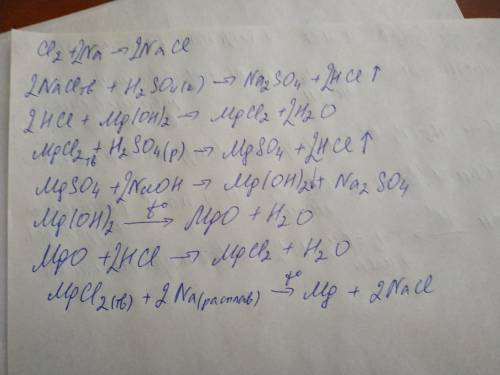 Cl2 + 2Na → 2NaCl
2NaClтв + H2SO4(к) → Na2SO4 + 2HCl ↑
2HCl + Mg(OH)2 → MgCl2 + 2H2O
MgCl2тв + H2SO4(р) → MgSO4 + 2HCl ↑
MgSO4 + 2NaOH → Mg(OH)2↓ + Na2SO4
Mg(OH)2 t°→ MgO + H2O
MgO + 2HCl → MgCl2 + H2O
MgCl2(тв) + 2Na(расплав) t°→ Mg + 2NaCl